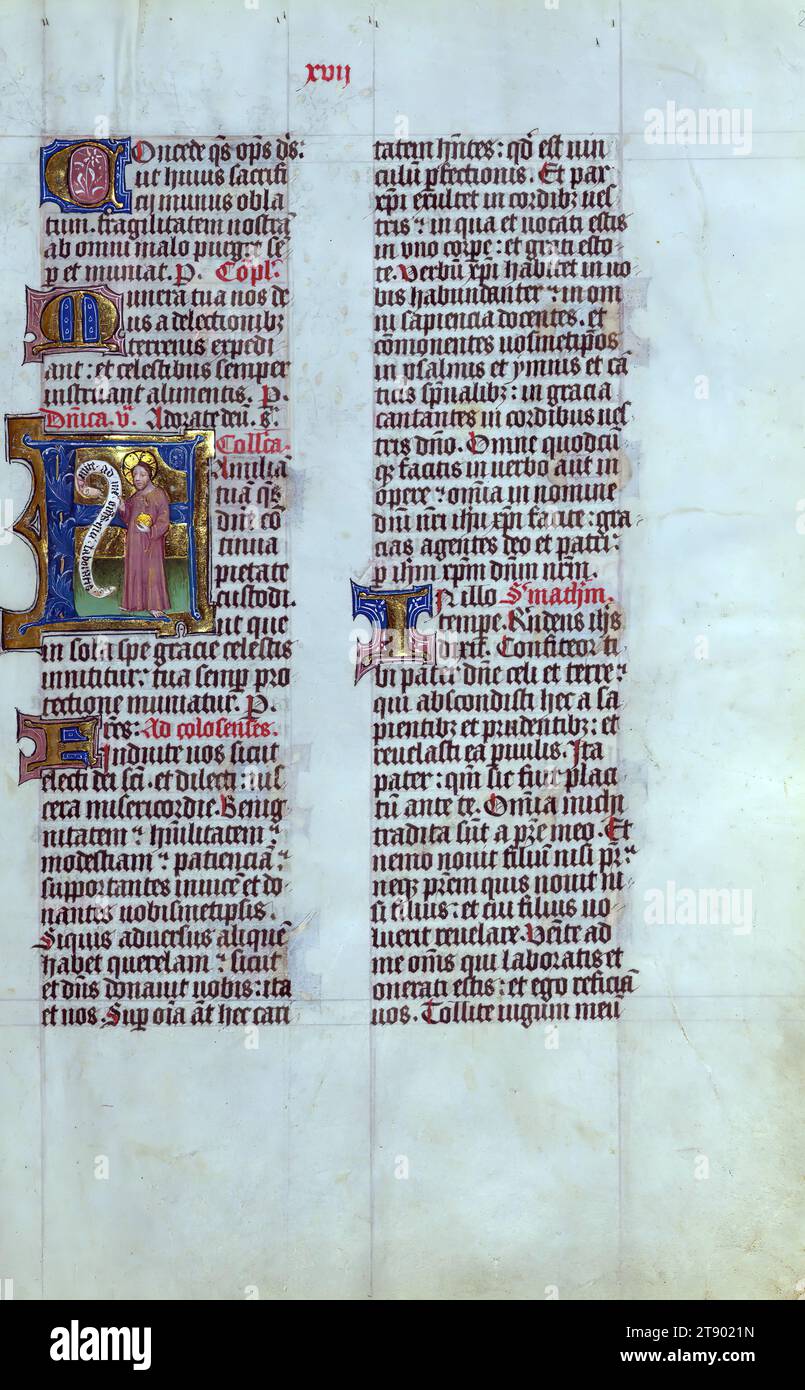 xvij
Oncede qs ops ds:
ut huius sacrifi
cij munus obla
tum. fragilitatem nostra
ab omni malo purget se
p et muniat. P. Copl.
Munera tua nos de
us a delectionibz
terrenis expedi
ant: et celestibus semper
instruant alimentis. P.
Dnica. v. Adorate deu. s.
Collca.
Familia
tua qs
dne co
tinua
pietate
custodi.
ut que
in sola spe gracie celestis
innititur: tua semp pro
tectione muniatur. P.
Fres: Ad colosenses.
Induite uos sicut
electi dei sci. et dilecti: uis
cera misericordie. Benig
nitatem et humilitatem et
modestiam et pacienciam et
supportantes inuice et do
nantes uobismetipsis.
Siquis aduersus alique
habet querelam et sicut
et dns donauit uobis: ita
et uos. Sup oia at hec cari
tatem hntes: qd est uin
culu pfectionis. Et pax
xpi exultet in cordibz ues
tris et in qua et uocati estis
in vno corpe: et grati esto
te. Verbu xpi habitet in uo
bis habundanter et in om
ni sapiencia docentes. et
comonentes uosmetipos
in psalmis et ymnis et ca
ticis spualibz: in gracia
cantantes in cordibus ues
tris dno. Omne quodcu
qz facitis in verbo aut in
opere et omia in nomine
dni nri ihu xpi facite: gra
cias agentes deo et patri
p ihm xpm dnm nrm.
In illo S. mathm.
tempe. Rndens ihs
dixit. Confiteor ti
bi pater dne celi et terre et
qui abscondisti hec a sa
pientibz et prudentibz: et
reuelasti ea paruulis. Ita
pater: qm sic fuit placi
tu ante te. Omia michi
tradita sunt a pre meo. Et
nemo nouit filiu nisi pr: et
neqz prem quis nouit ni
si filius: et cui filius uo
luerit reuelare. Venite ad
me omnis qui laboratis et
onerati estis: et ego reficia
uos. Tollite iugum meu
alamy
alamy
alamy
Image ID: 2T9021N
www.alamy.com